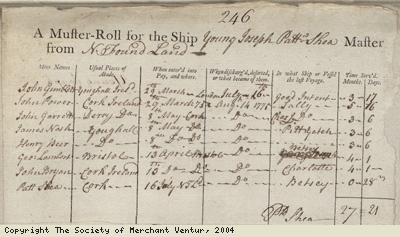 246
A Muster-Roll for the Ship Young Joseph Patt: Shea Master
from N. Found Land
Mens Names Usual Places of Abode When enter'd into Pay, and where. When discharg'd, deserted, or what became of them. In what Ship or Vessel the last Voyage. Time Serv'd. Months Days
Youghall Irel:d 29 March London July 16 Good Intent 3 17
John Power Cork Ireland 29 March 75 Aug: 14 1775 Sally 5 16
John Garrett Derry Do 8 May Cork Do Do 3 6
James Nash Youghall 8 May Do Do 3 6
Henry Do 8 Do Do Do 3 6
Geo: Lambert Bristol 13 April Do 4 1
John Bryan Cork Ireland 13 Do Do Do Charlotte 4 1
Patt Shea Cork 16 July Do Betsey 0 28
Shea 27 21
Copyright The Society of Merchant Ventur, 2004